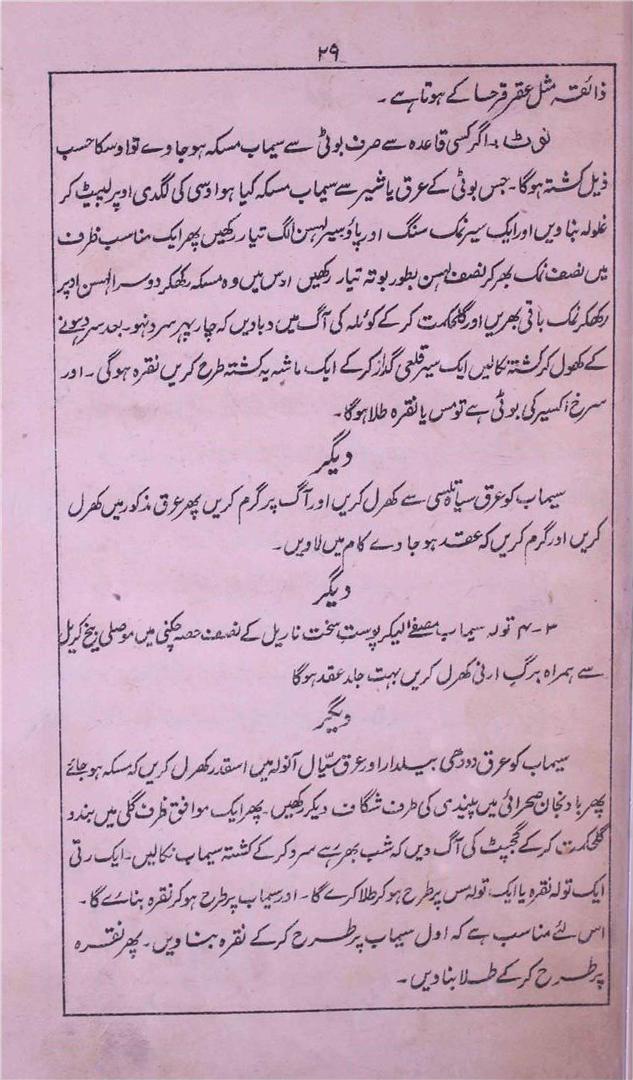 ۲۹
ذائقہ مثل عقرقرحا کے ہوتا ہے۔
نوٹ:۔ اگر کسی قاعدہ سے صرف بوٹی سے سیماب مسکہ ہو جاوے تو اوسکا حسب
ذیل کشتہ ہوگا۔ جس بوٹی کے عرق یا شیر سے سیماب مسکہ کیا ہو اوسی کی لگدی اوپر لپیٹ کر
غلولہ بناویں اور ایک سیر نمک سنگ اور پاؤ سیر لہسن الگ تیار رکھیں پھر ایک مناسب ظرف
میں نصف نمک بھر کر نصف لہسن بطور بوتہ تیار رکھیں اوس میں وہ مسکہ رکھکر دوسرا لہسن اوپر
رکھکر نمک باقی بھریں اور گلحکمت کر کے کوئلہ کی آگ میں دبا دیں کہ چار پہر سرد نہو۔ بعد سرد ہونے
کے کھول کر کشتہ نکالیں ایک سیر قلعی گداز کر کے ایک ماشہ یہ کشتہ طرح کریں نقرہ ہوگی۔ اور
سرخ اکسیر کی بوٹی ہے تو مس یا نقرہ طلا ہوگا۔
دیگر
سیماب کو عرق سیاہ تلسی سے کھرل کریں اور آگ پر گرم کریں پھر عرق مذکور میں کھرل
کریں اور گرم کریں کہ عقد ہو جاوے کام میں لاویں۔
دیگر
۳-۴ تولہ سیماب مصفےٰ لیکر پوست سخت ناریل کے نصف حصہ چکنی میں موصلی بیخ کریل
سے ہمراہ برگ ارنی کھرل کریں بہت جلد عقد ہوگا
دیگر
سیماب کو عرق دودھی بیلدار اور عرق سیّال آنولہ میں اسقدر کھرل کریں کہ مسکہ ہو جائے
پھر بادنجان صحرائی میں پیندی کی طرف شگاف دیکر رکھیں۔ پھر ایک موافق ظرف گلی میں بند و
گلحکمت کر کے گجپٹ کی آگ دیں کہ شب بھر رہے سرد کر کے کشتہ سیماب نکالیں۔ ایک رتی
ایک تولہ نقرہ یا ایک تولہ مس پر طرح ہو کر طلا کرے گا۔ اور سیماب پر طرح ہو کر نقرہ بنائے گا۔
اس لئے مناسب ہے کہ اول سیماب پر طرح کر کے نقرہ بناویں۔ پھر نقرہ
پر طرح کر کے طلا بنا دیں۔